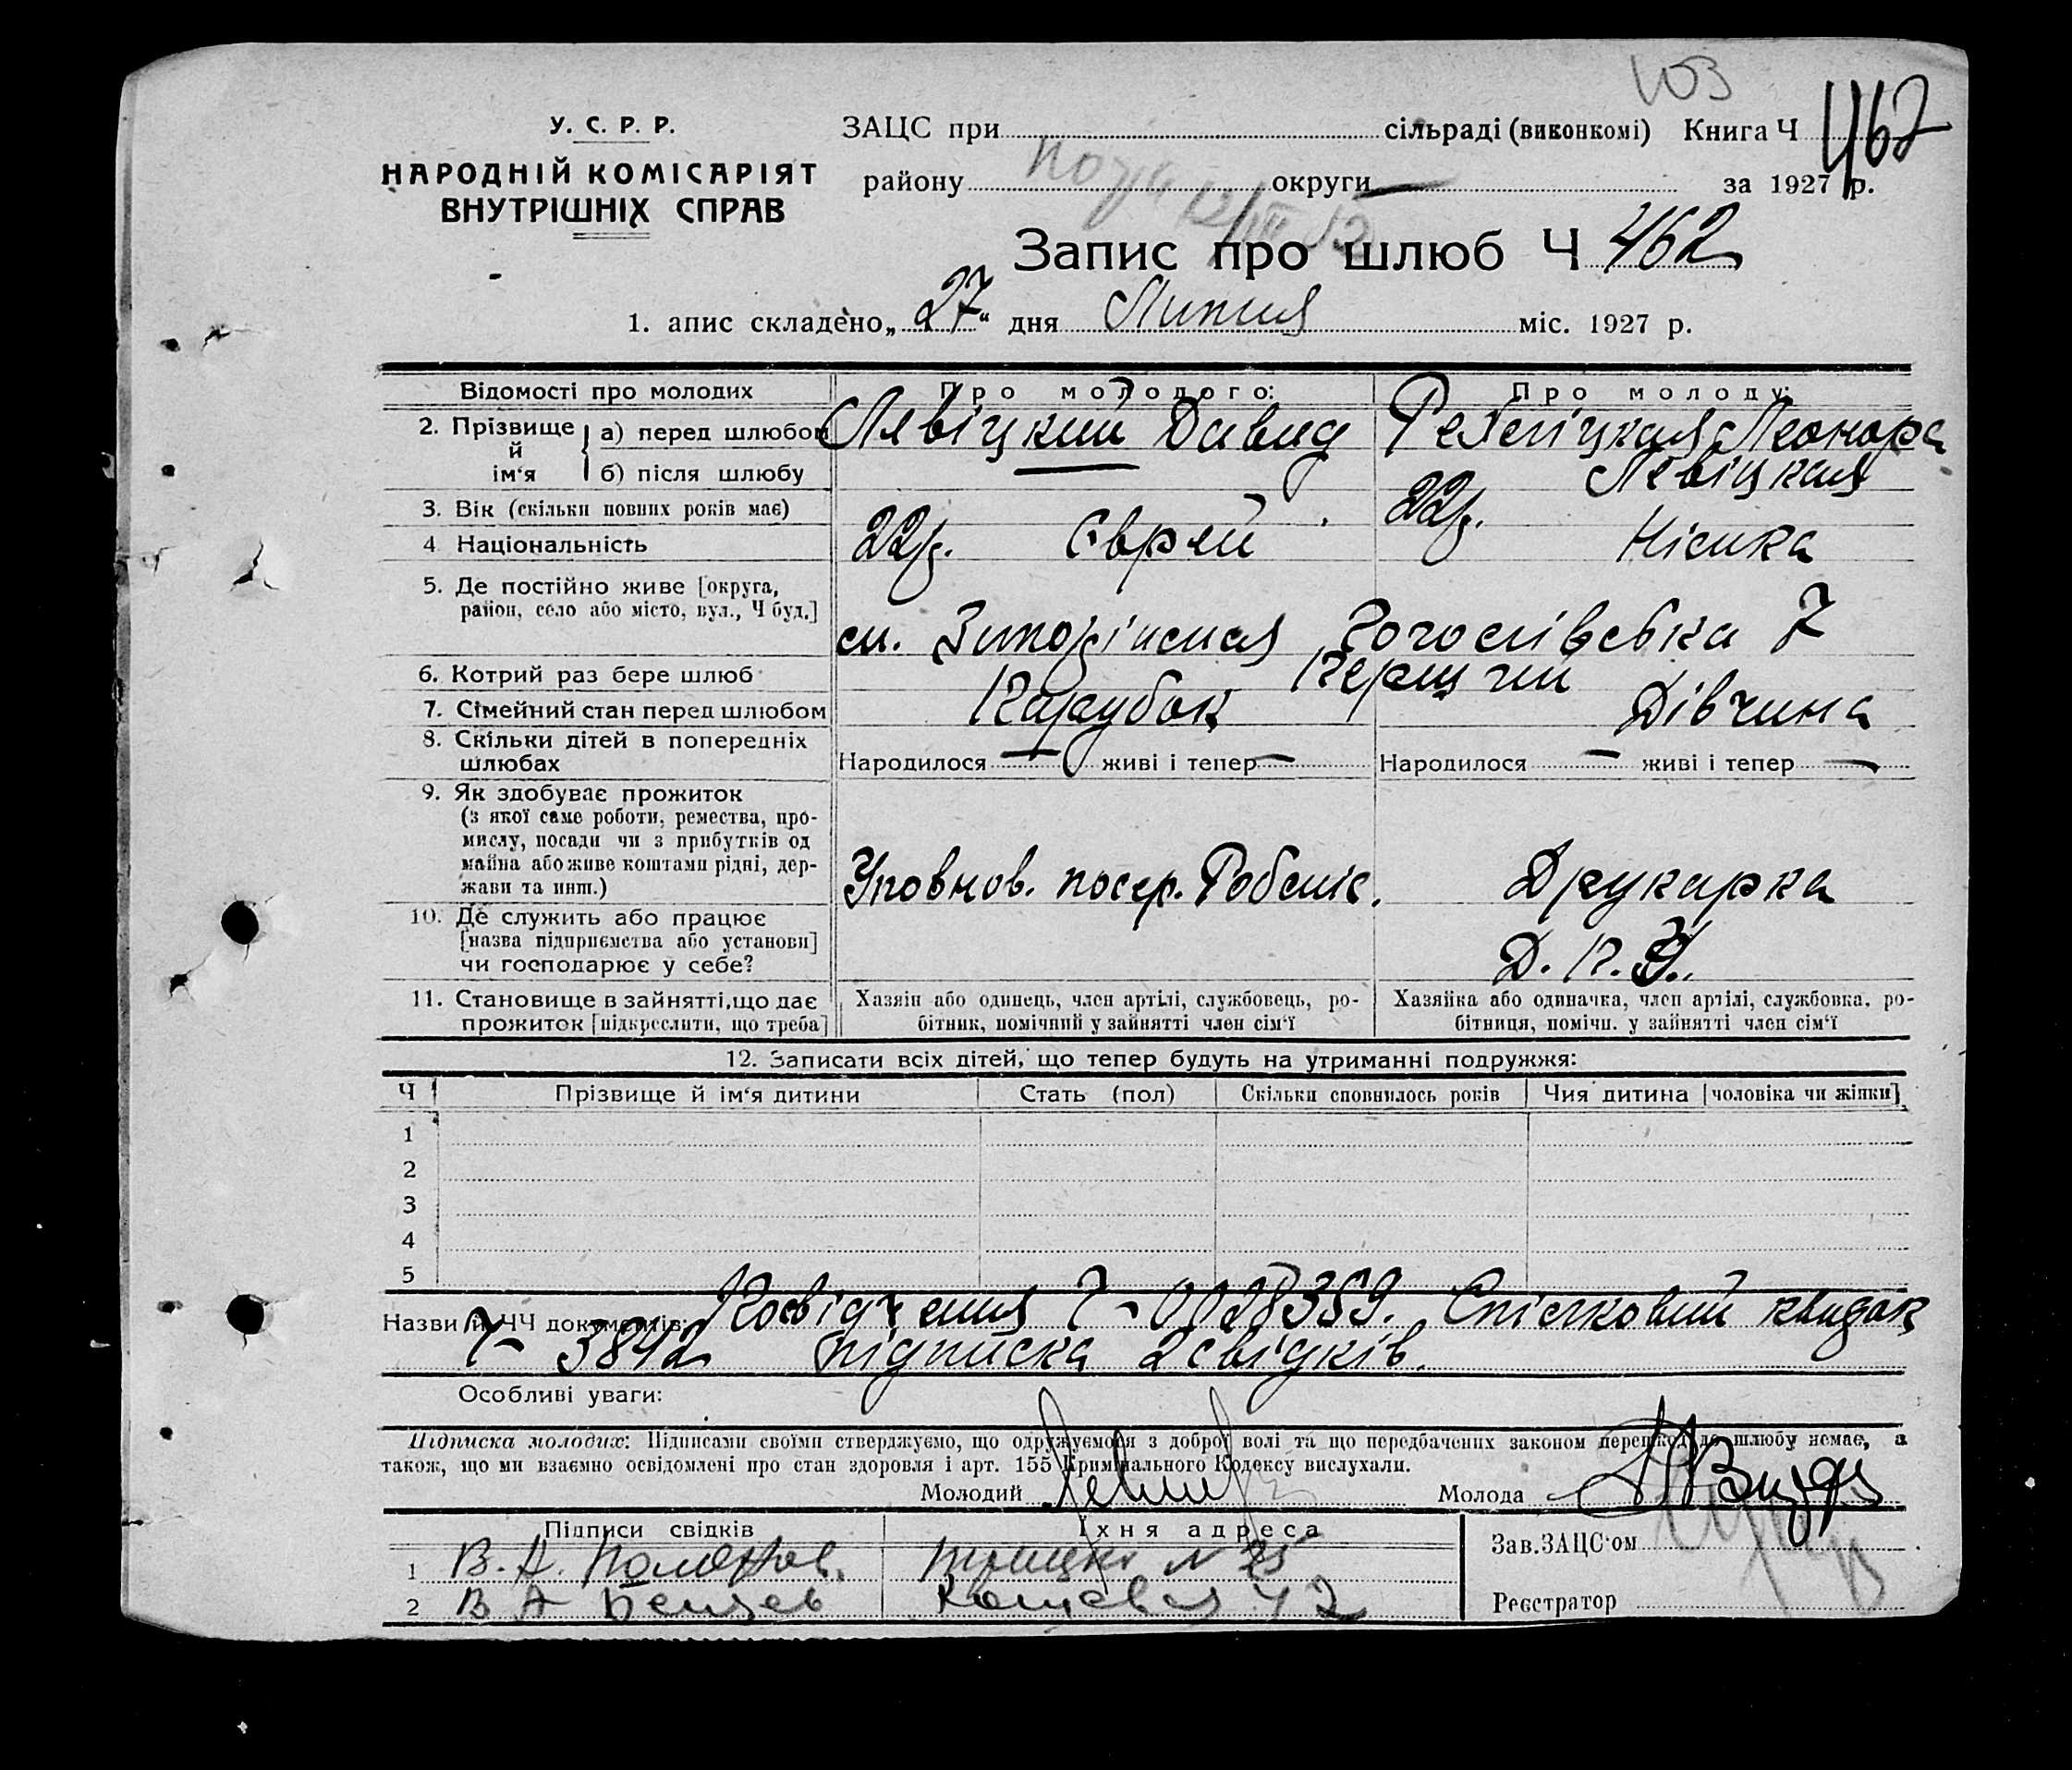 103
У. С. Р. Р.
НАРОДНІЙ КОМІСАРІЯТ
ВНУТРІШНІХ СПРАВ
ЗАЦС при сільраді (виконкомі) Книга Ч 462
району округи — за 1927 р.
Запис про шлюб Ч 462
1. апис складено „27“ дня Липня міс. 1927 р.
Відомості про молодих Про молодого: Про молоду:
2. Прізвище й ім‘я а) перед шлюбом Лявіцкий Давид Леонора
б) після шлюбу — Левіцкая
3. Вік (скільки повних років має) 22р. 22р.
4 Національність Єврей Німка
5. Де постійно живе [округа,
район, село або місто, вул., Ч буд.]
7
6. Котрий раз бере шлюб Перший
7. Сімейний стан перед шлюбом Парубок Дівчина
8. Скільки дітей в попередніх
шлюбах Народилося — живі і тепер — Народилося — живі і тепер —
9. Як здобуває прожиток
(з якої саме роботи, ремества, про-
мислу, посади чи з прибутків од
майна або живе коштами рідні, дер-
жави та инш.) Уповнов. посер. Робмис. Друкарка
10. Де служить або працює
[назва підприємства або установи]
чи господарює у себе? Д. П. У.
11. Становище в зайнятті, що дає
прожиток [підкреслити, що треба]
Хазяін або одинець, член артілі, службовець, ро-
бітник, помічний у зайнятті член сім‘ї
Хазяйка або одиначка, член артілі, службовка, ро-
бітниця, помічн. у зайнятті член сім‘ї
12. Записати всіх дітей, що тепер будуть на утриманні подружжя:
Ч Прізвище й ім‘я дитини Стать (пол) Скільки сповнилось років Чия дитина [чоловіка чи жінки]
1
2
3
4
5
Назви й ЧЧ документів: Посвідчення Ч – 0028359. Спілковий квидок
Ч – 3842 підписка 2 свідків.
Особливі уваги:
Підписка молодих: Підписами своїми стверджуємо, що одружуємося з доброї волі та що передбачених законом перешкод до шлюбу немає, а
також, що ми взаємно освідомлені про стан здоровля і арт. 155 Кримінального Кодексу вислухали.
Молодий Молода
Підписи свідків Їхня адреса
Зав. ЗАЦС‘ом
1 В. А.
2 В А
Реєстратор